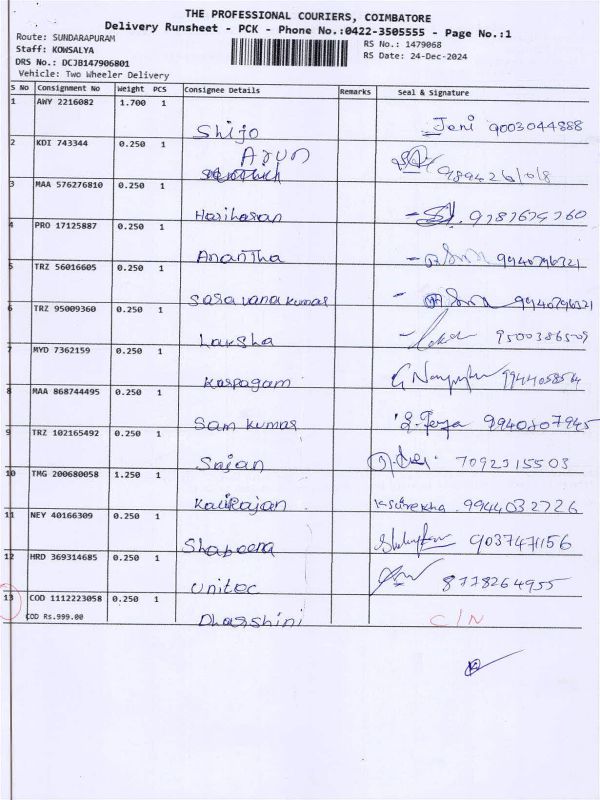 THE PROFESSIONAL COURIERS, COIMBATORE
Delivery Runsheet - PCK - Phone No.:0422-3505555 - Page No.:1
Route: SUNDARAPURAM RS No.: 1479068
Staff: KOWSALYA RS Date: 24-Dec-2024
DRS No.: DCJB147906801
Vehicle: Two Wheeler Delivery
S No Consignment No Weight PCS Consignee Details Remarks Seal & Signature
1 AWY 2216082 1.700 1
Shijo Jeni 9003044888
2 KDI 743344 0.250 1
Arun
3 MAA 576276810 0.250 1
Hariharan
4 PRO 17125887 0.250 1
Anantha 9940796321
5 TRZ 56016605 0.250 1
Saravanakumar 9940796321
6 TRZ 95009360 0.250 1
Laksha 9500386509
7 MYD 7362159 0.250 1
Karpagam
8 MAA 868744495 0.250 1
Sam kumar 9940207945
9 TRZ 102165492 0.250 1
Sajan 7092315503
10 TMG 200680058 1.250 1
Kalirajan K Surekha 9944032726
11 NEY 40166309 0.250 1
Shabeena 9037471156
12 HRD 369314685 0.250 1
Unitec 8778264955
13 COD 1112223058 0.250 1
COD Rs.999.00
Dharshini C/N